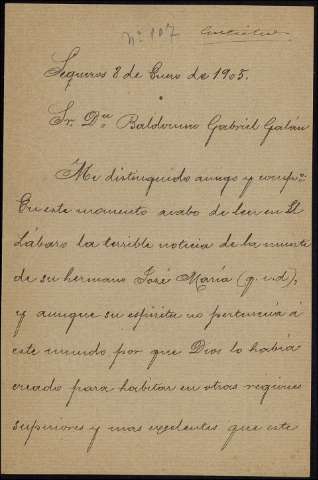 nº 107
Sequeros 8 de Enero de 1905.
Sr. Dn Baldomero Gabriel Galán
Mi distinguido amigo y comp.º
En este momento acabo de leer en El
Lábaro la terrible noticia de la muerte
de su hermano José María (q. e. d),
y aunque su espíritu no pertenecía á
este mundo por que Dios lo había
creado para habitar en otras regiones
superiores y mas excelentes que este